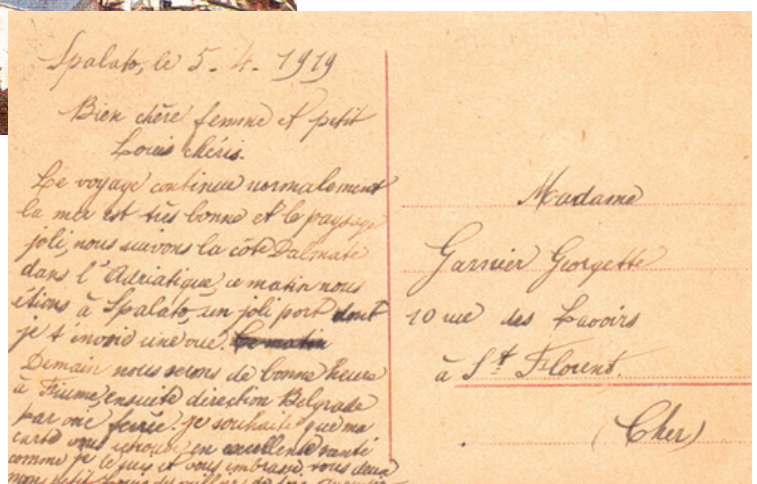 Spalato, le 5. 4. 1919
Bien chère femme et petit
Louis chéris.
Le voyage continue normalement
la mer est très bonne et le paysage
joli, nous suivons la côte Dalmate
dans l'Adriatique, ce matin nous
étions à Spalato, un joli port dont
je t'envoie une vue. Ce matin
Demain nous serons de bonne heure
à Fiume, ensuite direction Belgrade
par voie ferrée. je souhaite que ma
carte vous retrouve en excellente santé
comme je le suis et vous embrasse tous deux
mon petit Louis
Madame
Garnier Georgette
10 rue des Lavoirs
à St Florent.
(Cher)